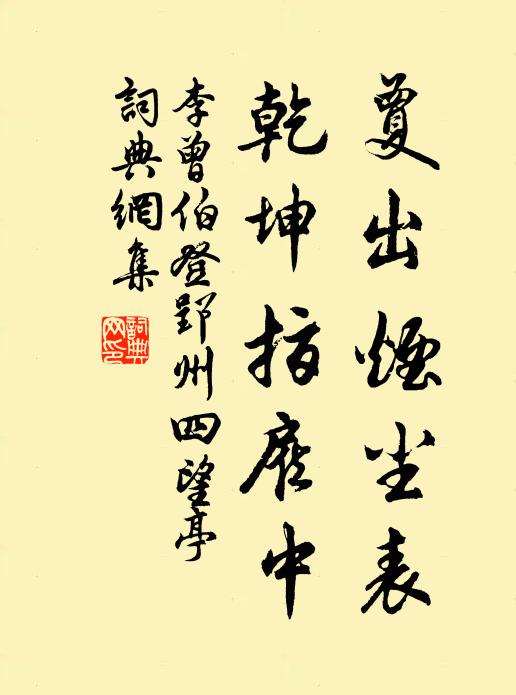 夐出煙尘表
乾坤指顧中
李曾伯登郢州四望亭
詞典網集
詞典网印